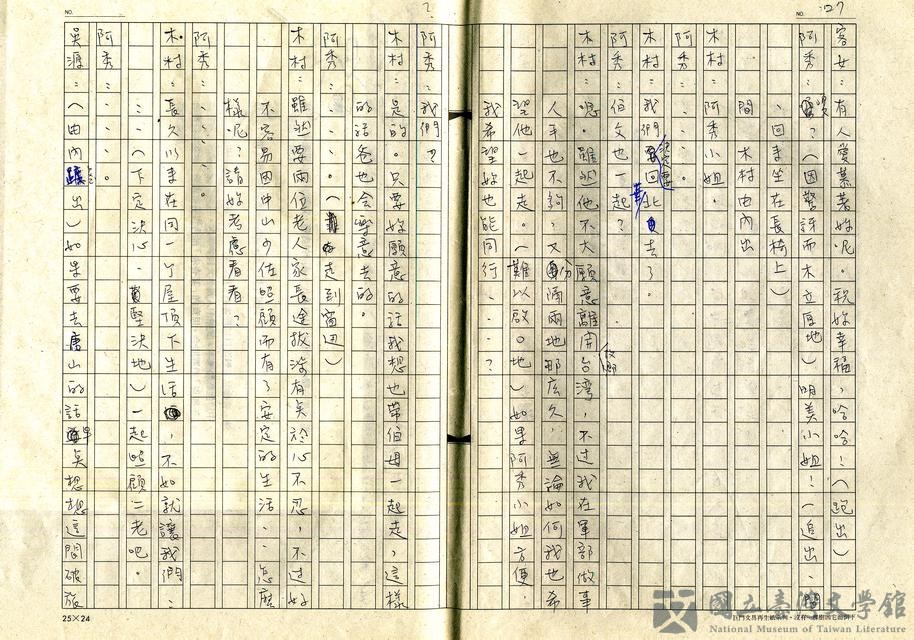 NO. 27
客女：有人愛慕著妳呢。祝妳幸福，哈哈！（跑出）
阿秀：？（因驚訝而木立原地）明美小姐！（追出、
回來坐在長椅上）
木村由內出
木村：阿秀小姐。
阿秀：……。
木村：我們決定要回北去了。
阿秀：伯父也一起？
木村：嗯。雖然他不大願意離開台灣，不过我在軍部做事
人手也不夠，又分隔兩地那広久，無論如何我也希
望他一起走。（難以啟口地）如果阿秀小姐方便，
我希望妳也能同行……？
阿秀：我們？
木村：是的。只要妳願意的话我想也带伯母一起走，這樣
的話爸也会愿意去的。
阿秀：……（走到窗边）
木村：雖然要兩位老人家長途拔涉有矣於心不忍，不过好
不容易因中山少佐照顧而有了安定的生活……怎庅
樣呢？請妳考慮看看？
阿秀：……。
木村：長久以来在同一个屋頂下生活，不如就讓我們…
…（下定決心、堅決地）一起照顧二老吧。
阿秀：……。
吳源：（由內走出）如果要去唐山的話早矣想想這間破旅
25×24
國立臺灣文學館
National Museum of Taiwan Literature